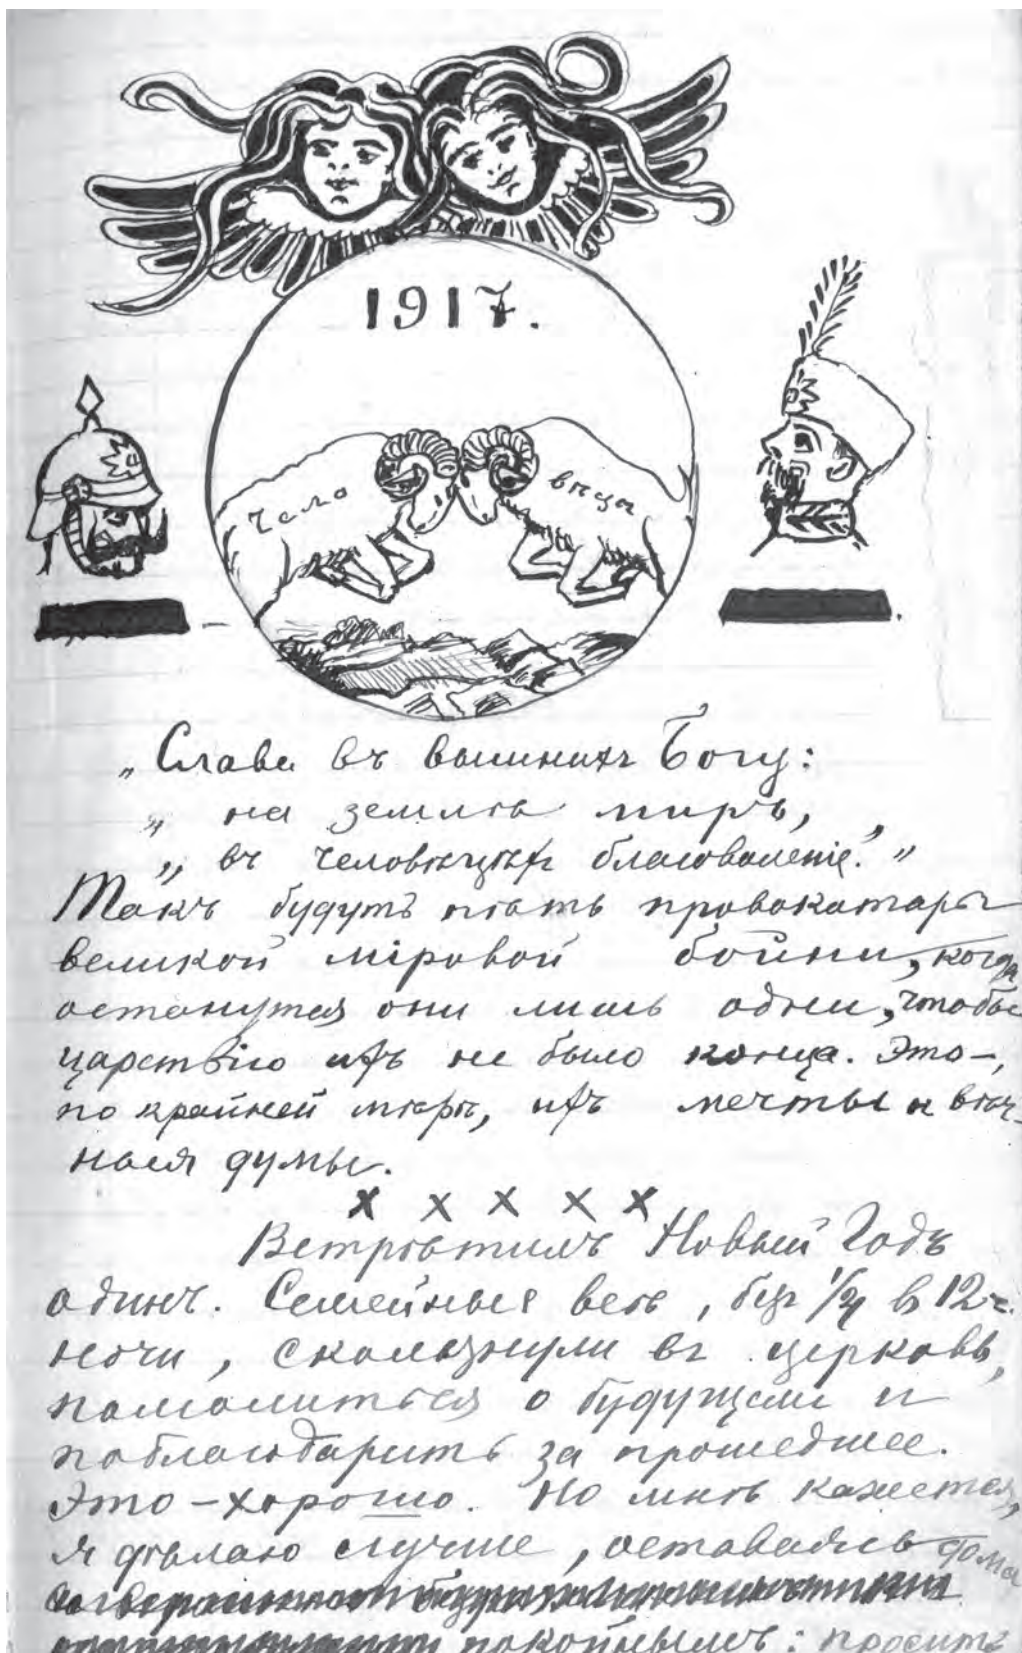 1917.
чело вѣцы
„Слава въ вышнихъ Богу:
„ на землѣ миръ,
„ въ человѣцѣхъ благоволеніе.“
Такъ будутъ пѣть провокаторы
великой міровой бойни, когда
останутся они лишь одни, чтобы
царствію ихъ не было конца. Это –
по крайней мѣрѣ, ихъ мечты и вѣч-
ныя думы.
x x x x x
Встрѣтилъ Новый Годъ
одинъ. Семейные всѣ, безъ 1/4 в 12 ч.
ночи, скользнули въ церковь,
помолиться о будущем и
поблагодарить за прошедшее.
Это – хорошо. Но мнѣ кажется,
я дѣлаю лучше, оставаясь дома
покойнымъ: просить